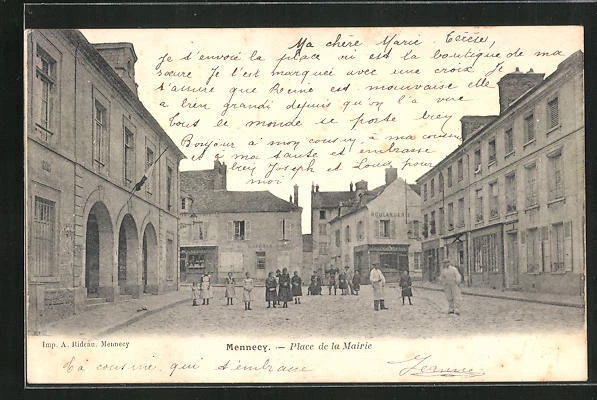 Ma chère Marie Cécile,
Je t'envoie la place ou est la boutique de ma
sœure Je l'est marquée avec une croix Je
t'assure que Reine est mauvaise elle
a bien grandi depuis qu'on l'a vue
tout le monde se porte bien
Bonjour à mon cousin, à ma cousine
et à ma tante et embrasse
bien Joseph et Louis pour
moi
BOULANGERIE
Imp. A. Rideau. Mennecy
Mennecy. — Place de la Mairie
Ta cousine qui t'embrasse
Jeanne